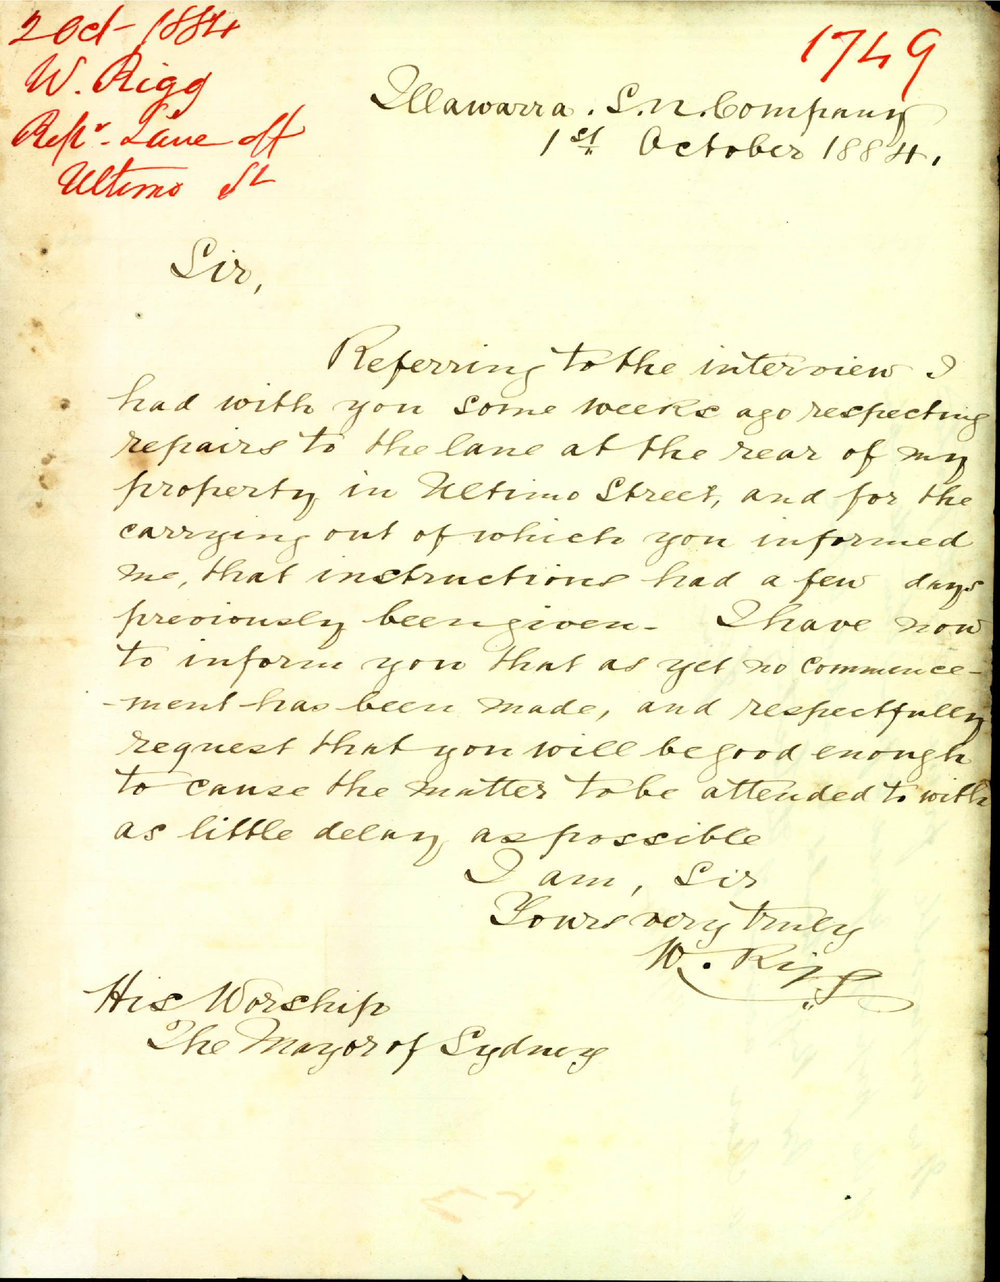 2 Oct - 1884
W. Rigg
Repr. Lane off
Ultimo St
1749
Illawarra. S. N. Company
1st October 1884.
Sir,
Referring to the interview I
had with you some weeks ago respecting
repairs to the lane at the rear of my
property in Ultimo Street, and for the
carrying out of which you informed
me, that instructions had a few days
previously been given - I have now
to inform you that as yet no commence-
-ment has been made, and respectfully
request that you will be good enough
to cause the matter to be attended to with
as little delay as possible
I am, Sir
Yours very truly
W. Rigg
His Worship
The Mayor of Sydney